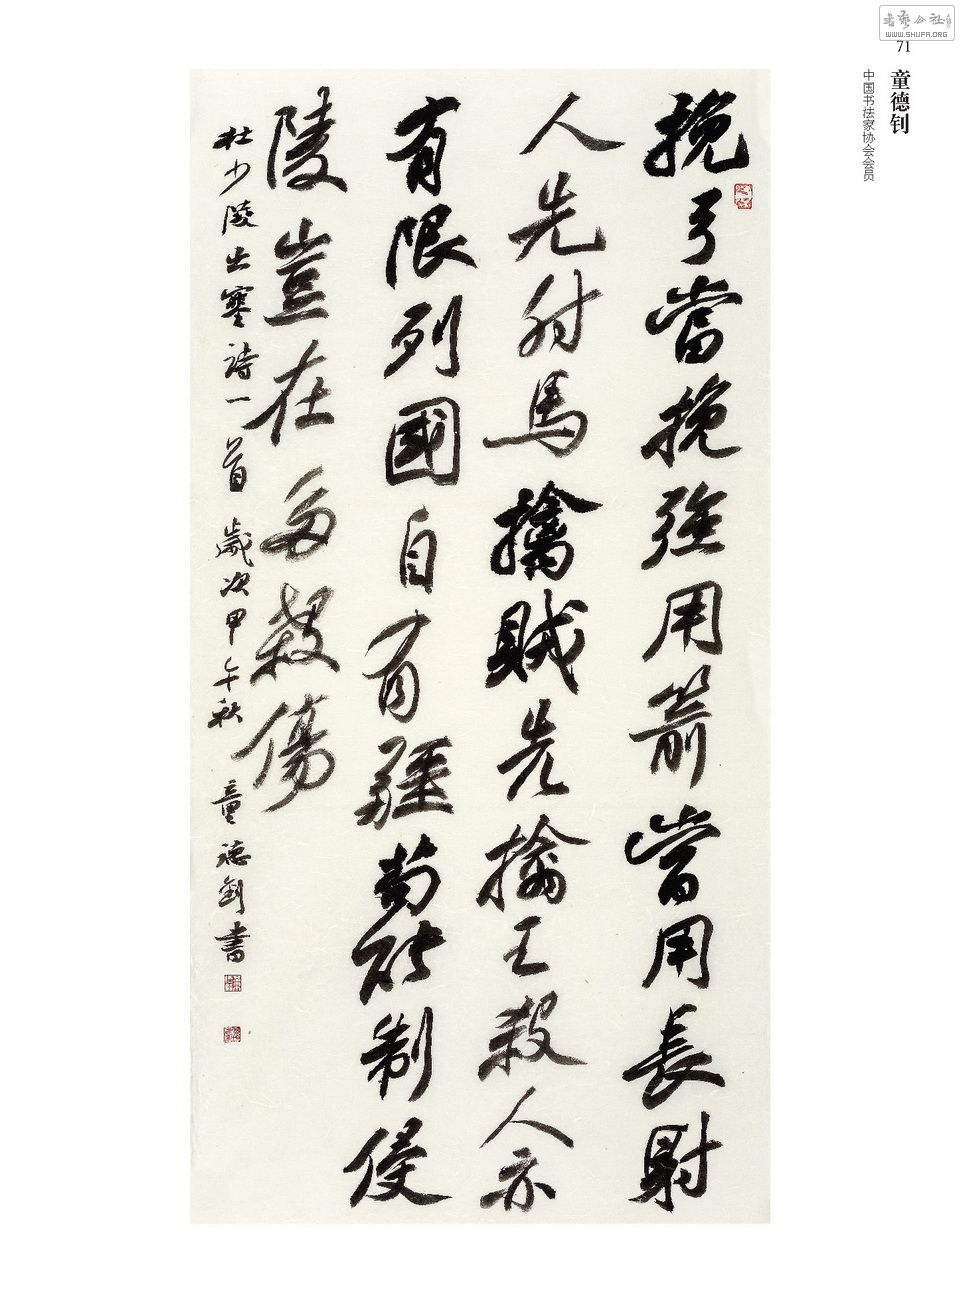 書藝公社
WWW.SHUFA.ORG
71
童德钊
中国书法家协会会员
挽弓當挽強用箭當用長射
人先射馬擒賊先擒王殺人亦
有限列國自有疆苟能制侵
陵豈在多殺傷
杜少陵出塞詩一首 歲次甲午秋 童德釗書